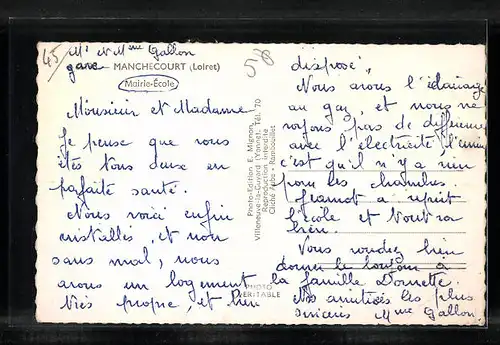 45
Mr et Mme Gallon
gare MANCHECOURT (Loiret)
Mairie-École
Monsieur et Madame
Je pense que vous
êtes tous deux en
parfaite santé.
Nous voici enfin
installés, et non
sans mal, nous
avons un logement
très propre, et bien
58
Photo-Edition E. Mignon
Villeneuve-la-Guyard (Yonne), Tél. 70
Reproduction interdite
Cliché Fabs - Rambouillet
PHOTO
VÉRITABLE
disposé,
Nous avons l'éclairage
au gaz, et nous ne
voyons pas de différence
avec l'électricité l'ennui
c'est qu'il n'y a rien
pour les chambres.
Jeannot a repris
l'école et tout va
bien.
Vous voudrez bien
donner le bonjour à
la famille Dornette.
Nos amitiés les plus
sincères Mme Gallon.